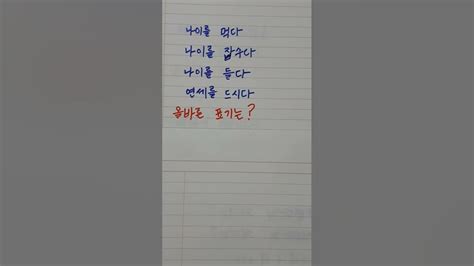 나이를 먹다
나이를 잡수다
나이를 들다
연세를 드시다
올바른 표기는?